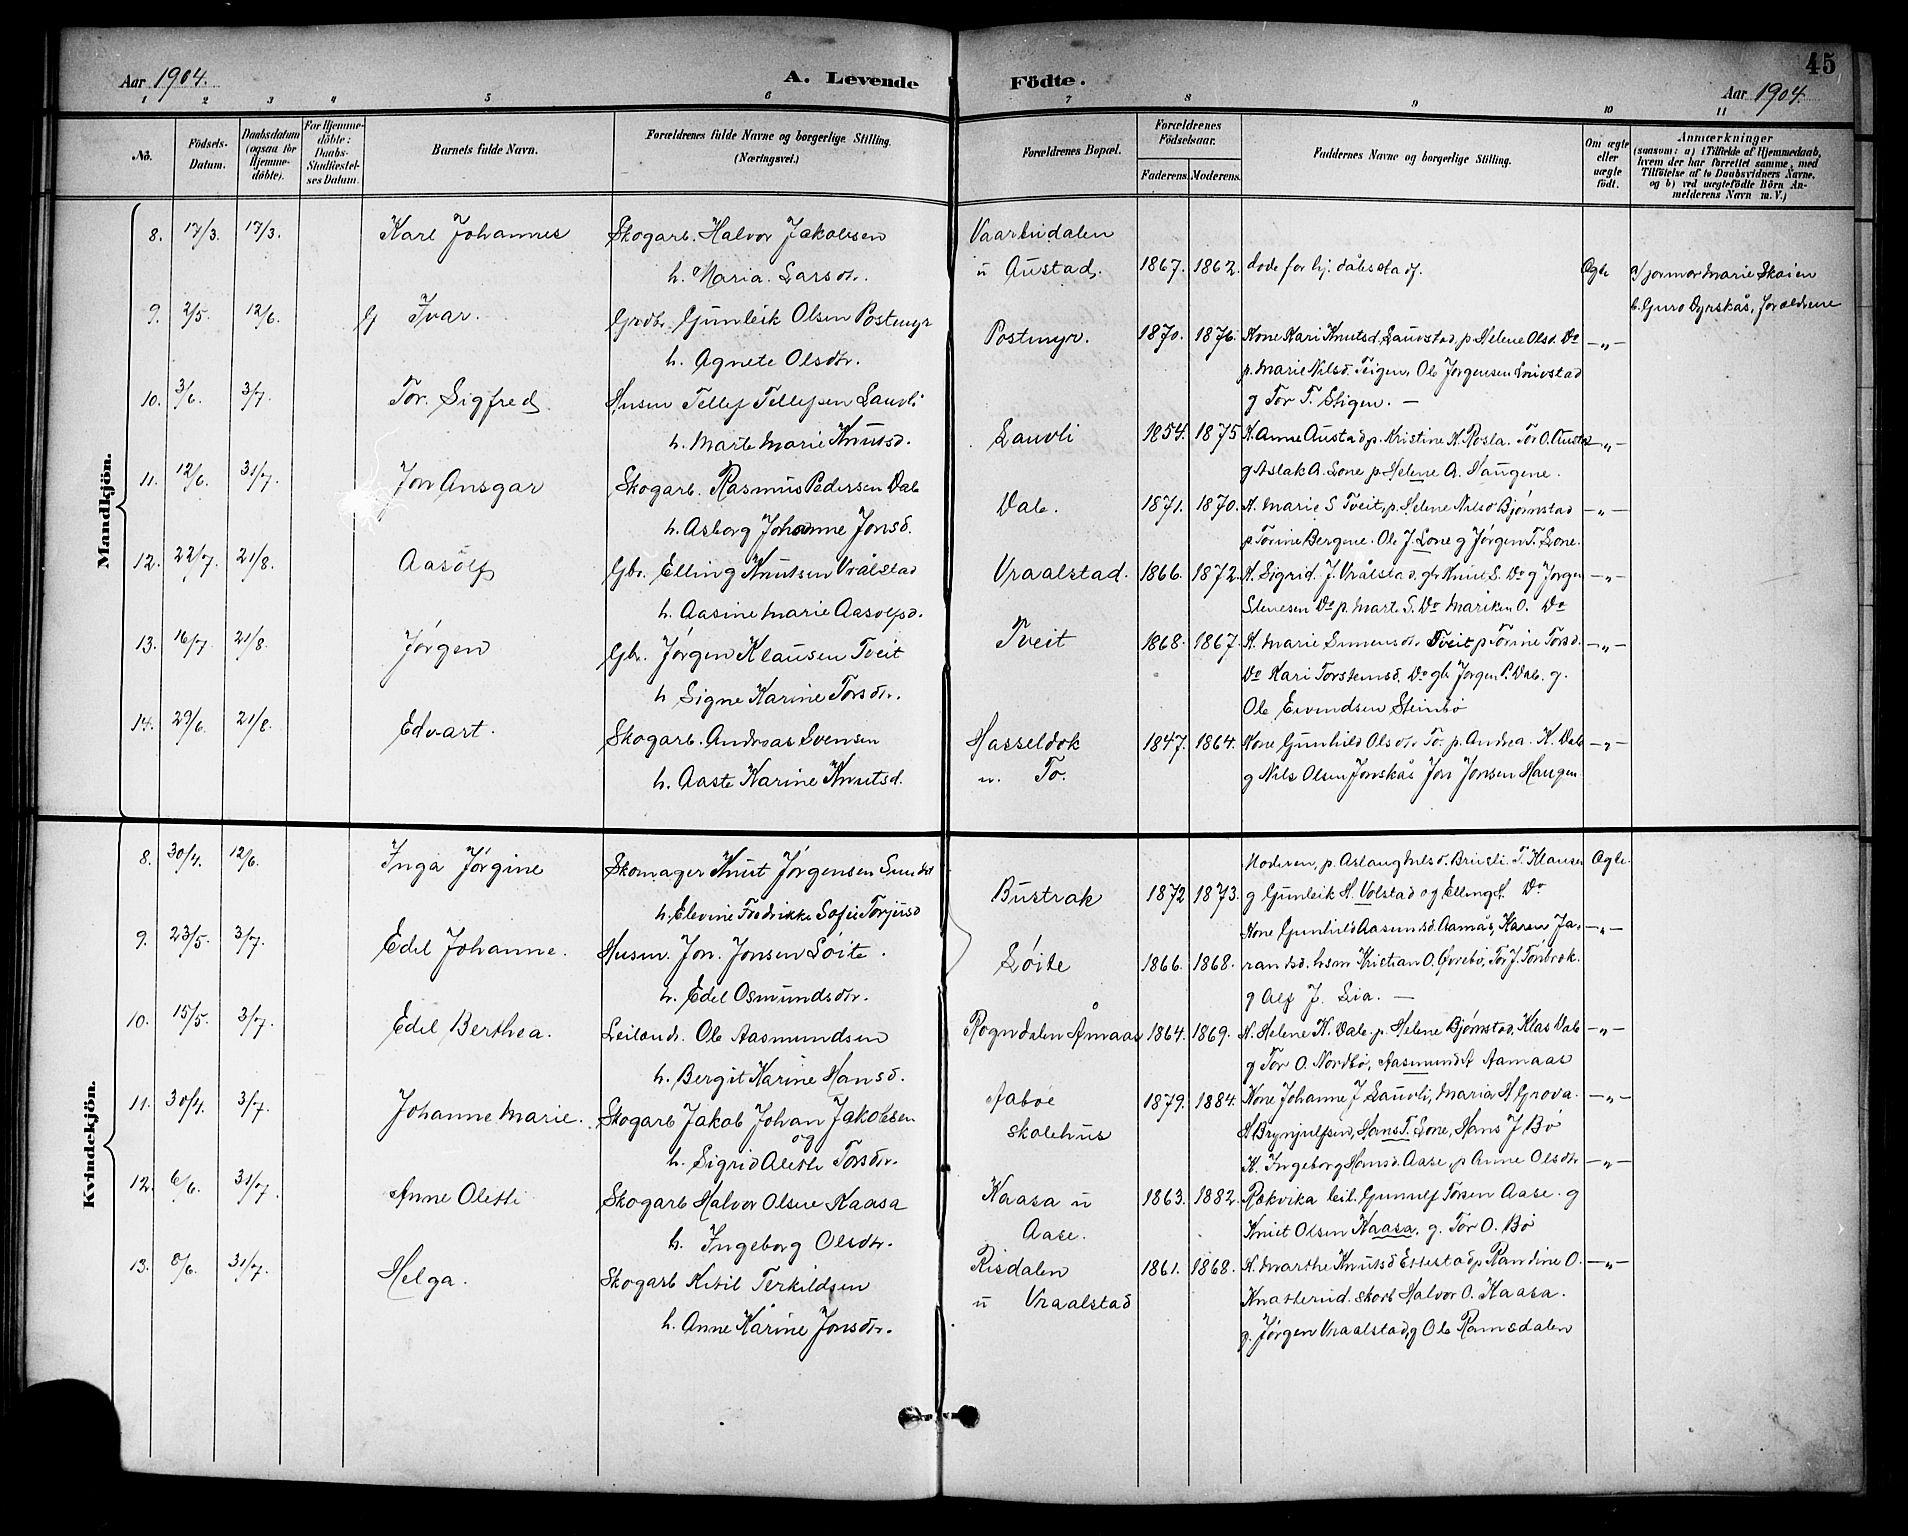 45
Aar 1904. A. Levende Födte. Aar 1904.
1 2 3 4 5 6 7 8 9 10 11
No. Födsels-Datum. Daabsdatum (ogsaa for Hjemme-döbte). For Hjemme-döbte: Daabs-Stadfæstel-ses Datum. Barnets fulde Navn. Forældrenes fulde Navne og borgerlige Stilling. (Næringsvei.) Forældrenes Bopæl. Forældrenes Födselsaar. Faderens. Moderens. Faddernes Navne og borgerlige Stilling. Om ægte eller uægte født. Anmærkninger (saasom: a) i Tilfælde af Hjemmedaab, hvem der har forrettet samme, med Tilföielse af to Daabsvidners Navne. og b) ved uægtefödte Börn An-melderens Navn m. V.)
Mandkjön.
8. 17/3. 17/3. Karl Johannes Skogarb. Halvor Jakobsen Vaarlidalen
h. Maria Larsdr. u Austad. 1867. 1862. døde før hj. dåbsstadf. Ægte a/ jormor Marie Skaien
b. Guro Dyrskås, Forældrene
9. 2/5. 12/6. G Ivar. Grdbr. Gunleik Olsen Postmyr
h. Agnete Olsdtr. Postmyr. 1870. 1876. Kone Kari Knutsd. Lauvstad, p Helene Olsd. Do —"—
p. Marie Nilsd. Teigen, Ole Jørgensen Lauvstad
g Tor T. Stigen. —
10. 3/6. 3/7. Tor Sigfred Husm Tellef Tellefsen Lauvli
h. Marte Marie Knutsd. Lauvli 1854. 1875 K. Anne Austad p. Kristine K. Rosla. Tor O. Austad —"—
g Aslak A. Lone p Helene A. Haugene.
11. 12/6. 31/7. Jon Ansgar Skogarb. Rasmus Pedersen Dale
h. Asborg Johanne Jonsd. Dale. 1871. 1870. K. Marie S Tveit, p. Helene Nilsd Bjørnstad —"—
p Torine Bergene. Ole J. Lone g Jørgen T. Lone.
12. 22/7. 21/8. Aasolf Gbr. Elling Knutsen Vrålstad
h. Aasine Marie Aasolfsd. Vraalstad. 1866. 1872. K. Sigrid J. Vrålstad, gb Knut S. Do g Jørgen —"—
Stenesen Do p. Marte T. Do Mariken O. Do
13. 16/7 21/8. Jørgen Gbr. Jørgen Klausen Tveit
h Signe Karine Torsdr. Tveit 1868. 1867. K. Marie Simensdr Tveit p Torine Torsd. —"—
Do Kari Torstensd. Do gb Jørgen P. Dale. g.
Ole Eivindsen Steinbø
14. 29/6. 21/8. Edvart. Skogarb. Andreas Svensen Hasseldok
h. Aaste Karine Knutsd. u. To. 1847. 1864. Kone Gunhild Olsdr To. p. Andrea K. Dale —"—
g Nils Olsen Jonskås Jon Jonsen Haugen
Kvindekjön.
8. 30/4. 12/6. Inga Jørgine Skomager Knut Jørgensen Sundet
h. Elevine Fredrikke Sofie Torjusd Bustrak 1872 1873. Moderen, p. Aslaug Nilsd. T. Klausen Ægte
g Gunleik H. Volstad og Elling H. Do
9. 23/5. 3/7. Edel Johanne. Husm. Jon. Jonsen Løite.
h. Edel Osmundsdtr. Løite 1866. 1868. Kone Gunhild Aasmundsd. Aamås, Karen Ja- —"—
randsd. hsm Kristian O. Øvrebø, Tor J. Tørbrok.
g Alf J. Lia. —
10. 15/5. 3/7. Edel Berthea. Leilænd. Ole Aasmundsen
h. Bergit Karine Hansd. Rogndalen Åmaas 1864. 1869. K. Helene K. Dale. p. Helene Bjørnstad, Klas Dale —"—
g Tor O. Nordbø, Aasmund A Aamaas
11. 30/4. 3/7. Johanne Marie. Skogarb Jakob Johan Jakobsen og
h. Sigrid Alette Torsdtr. Aabøe skolehus 1879. 1884. Kone Johanne J Lauvli, Maria H Grova. —"—
H. Brynjulfsen, Hans T. Lone, Hans J Bø
12. 6/6. 31/7. Anne Olette Skogarb Halvor Olsen Kaasa
h. Ingeborg Olsdtr. Kaasa u Aase. 1863. 1882. K. Ingeborg Hansd. Aase, p Anne Olsdtr —"—
Rækvika leil. Gunnulf Torsen Aase. g
Knut Olsen Kaasa. g. Tor O. Bø
13. 8/6. 31/7. Helga. Skogarb Ketil Terkildsen
h. Anne Karine Jonsdtr. Risdalen u Vraalstad 1861. 1868. K. Marthe Knutsd p Randine O. —"—
Knatterud. skarb Halvor O. Kaasa.
g. Jørgen Vraalstad, g Ole Ramsdalen